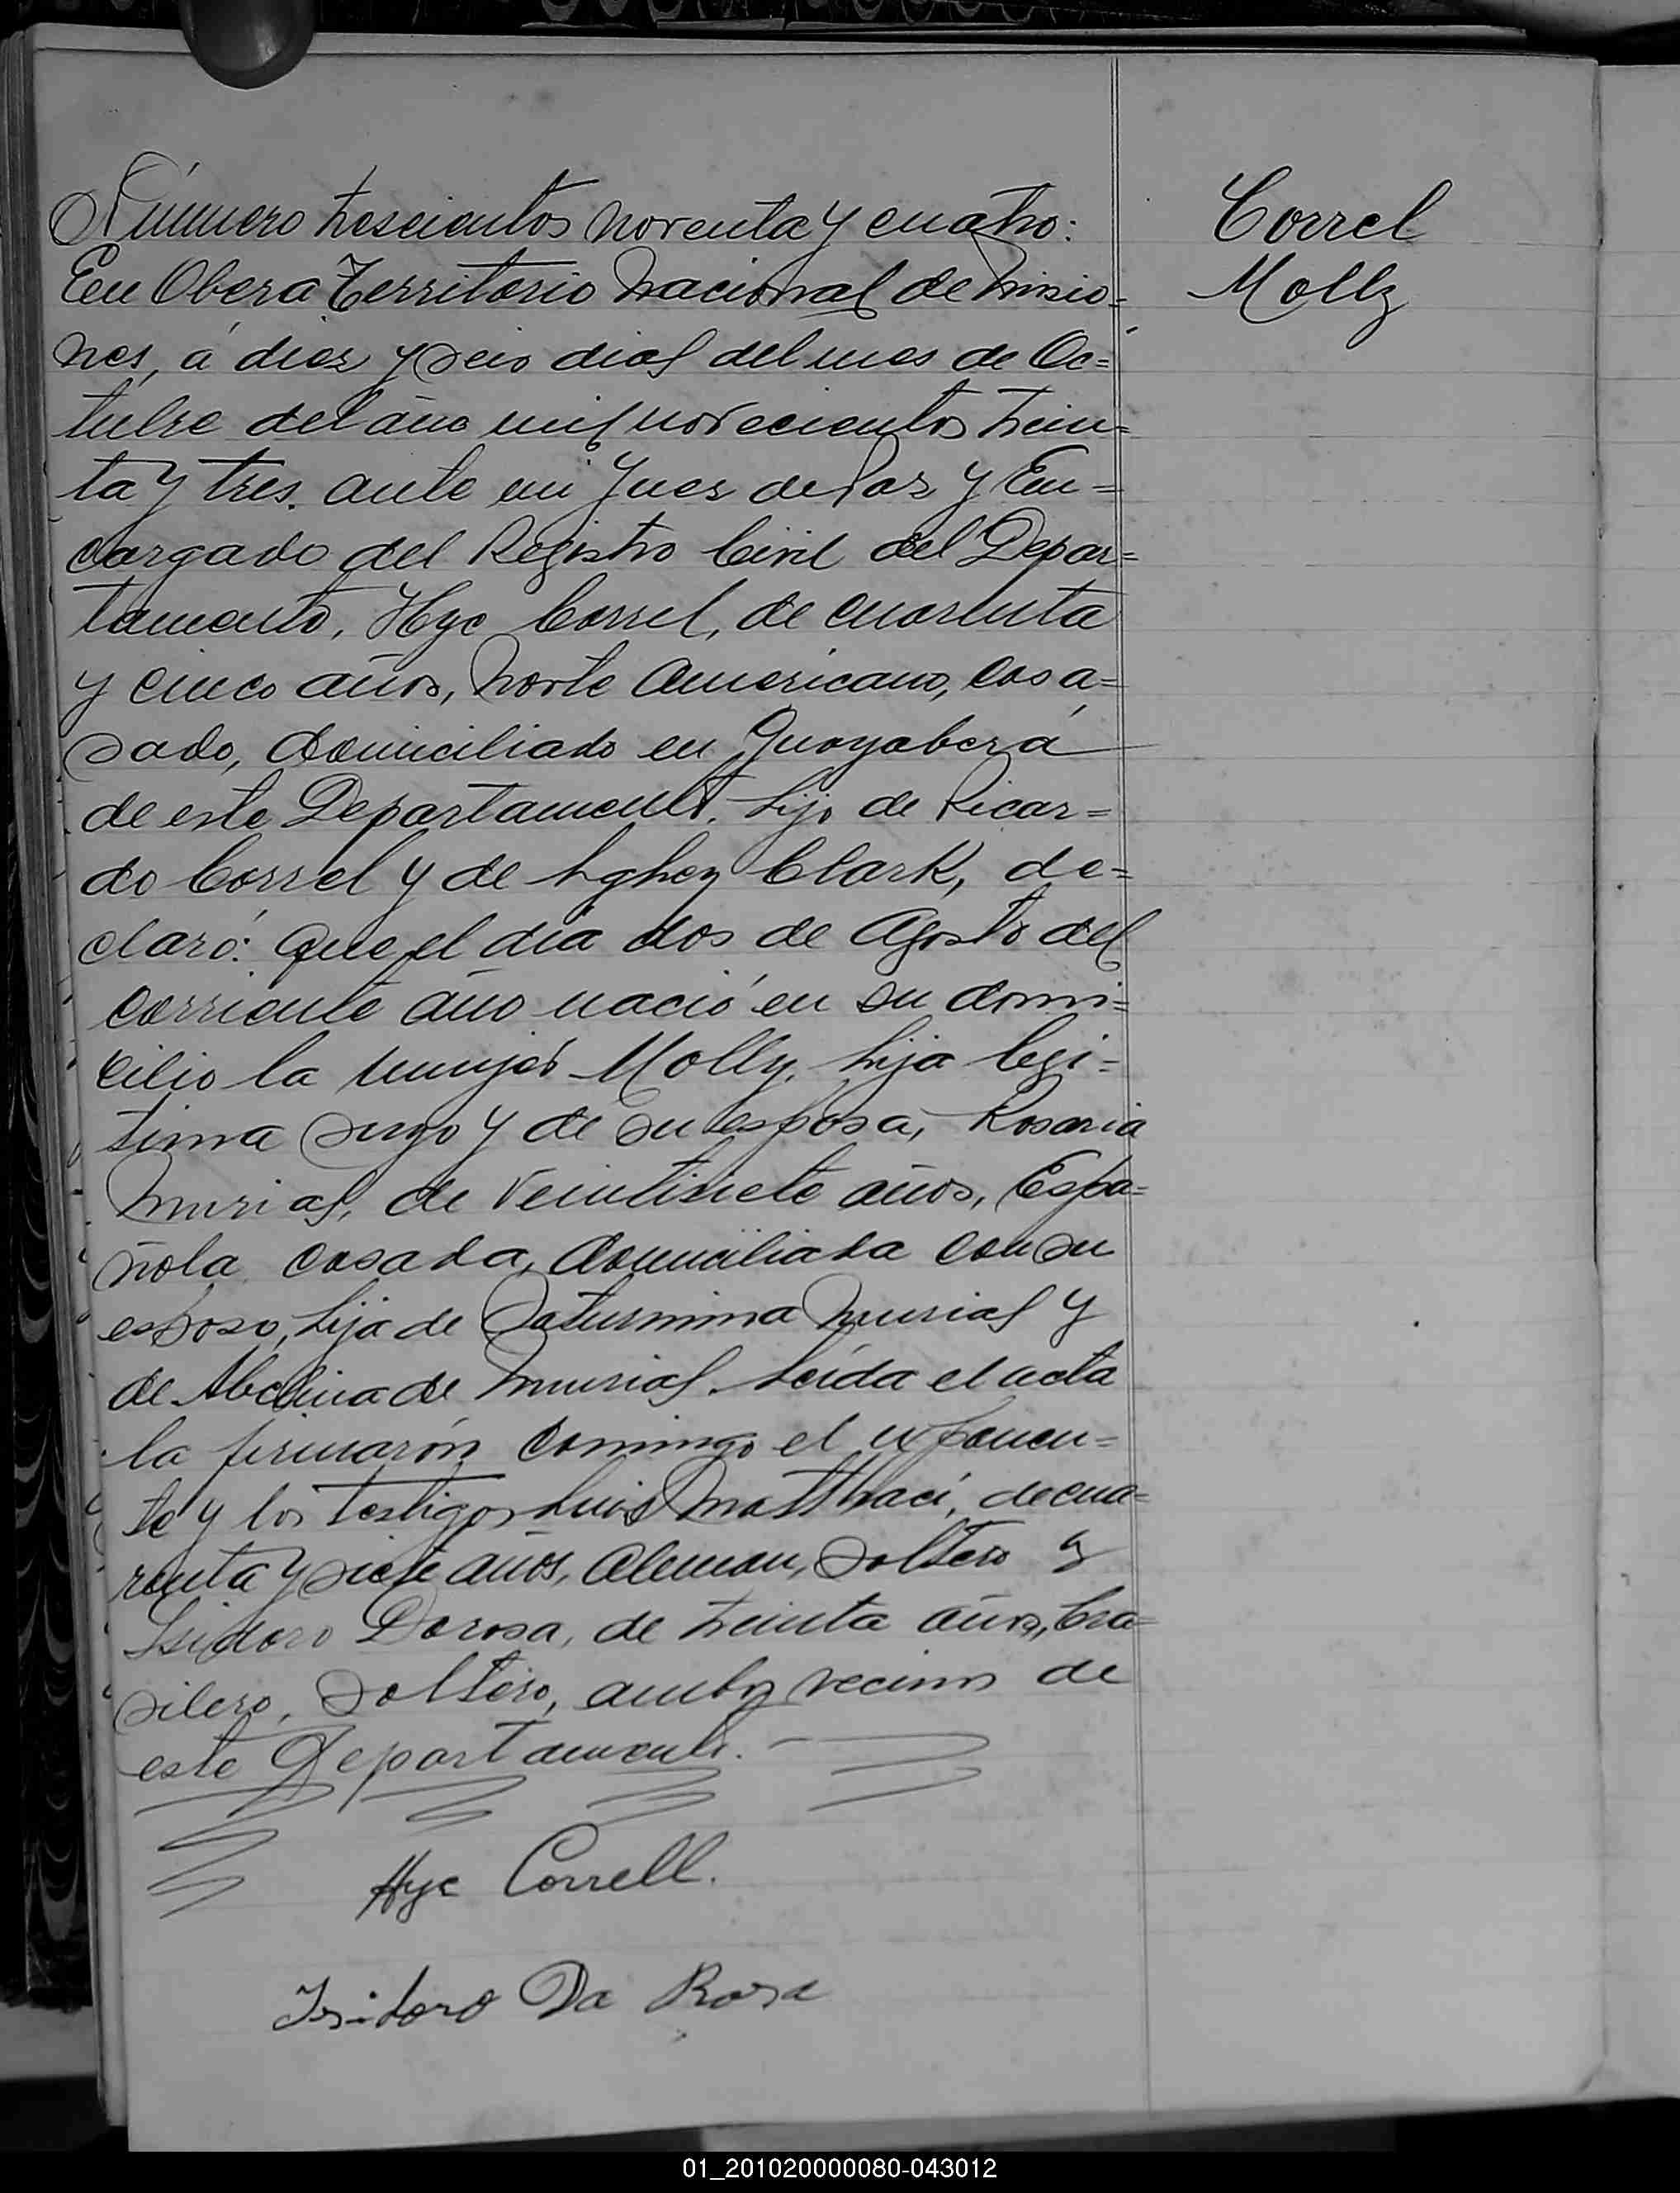 Número trescientos noventa y cuatro:
Correl
Molly
En Obera Territorio Nacional de Misio=
nes, á diez y seis dias del mes de Oc=
tubre del año mil novecientos trein=
ta y tres. ante mi Juez de Paz y En=
cargado del Registro Civil del Depar=
tamento, Hyc Correl, de cuarenta
y cinco años, Norte Americano, casa=
sado, domiciliado en Guayabera
de este Departamento. hijo de Ricar=
do Correl y de Clark, de=
claró: Que el dia dos de Agosto del
corriente año nació en su domi=
cilio la mujer Molly, hija legi=
tima suya y de su esposa, Rosaria
Murias, de veintisiete años, Espa=
ñola casada, domiciliada con su
esposo, hija de Saturnina Murias y
de Abelina de Murias. Leída el acta
la firmarón conmigo el exponen=
te y los testigos Luis Matthaci, de cua=
renta y siete años, Aleman, soltero y
Isidoro Darosa, de treinta años, bra=
silero, soltero, ambos vecinos de
este Departamento.
Hyc Correll.
Isidoro Da Rosa
01_201020000080-043012